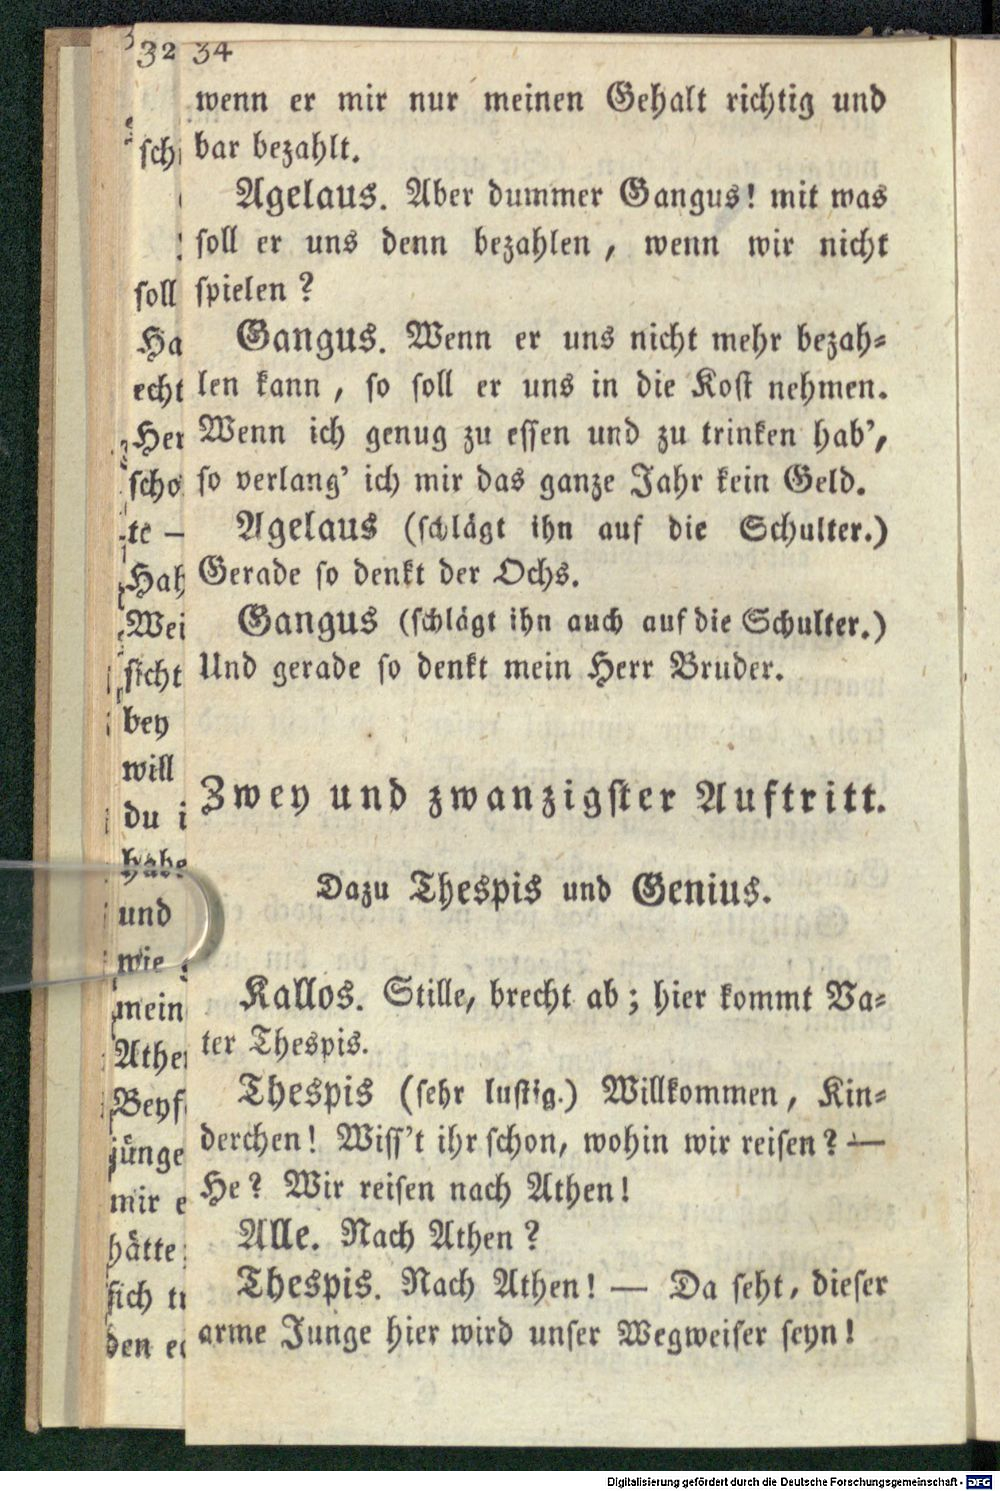 34
wenn er mir nur meinen Gehalt richtig und
bar bezahlt.
Agelaus. Aber dummer Gangus! mit was
soll er uns denn bezahlen, wenn wir nicht
spielen?
Gangus. Wenn er uns nicht mehr bezah-
len kann, so soll er uns in die Kost nehmen.
Wenn ich genug zu essen und zu trinken hab',
so verlang' ich mir das ganze Jahr kein Geld.
Agelaus (schlägt ihn auf die Schulter.)
Gerade so denkt der Ochs.
Gangus (schlägt ihn auch auf die Schulter.)
Und gerade so denkt mein Herr Bruder.
Zwey und zwanzigster Auftritt.
Dazu Thespis und Genius.
Kallos. Stille, brecht ab; hier kommt Va-
ter Thespis.
Thespis (sehr lustig.) Willkommen, Kin-
derchen! Wiss't ihr schon, wohin wir reisen? —
He? Wir reisen nach Athen!
Alle. Nach Athen?
Thespis. Nach Athen! — Da seht, dieser
arme Junge hier wird unser Wegweiser seyn!
32
sch
soll
Ha
echt
Her
scho
te —
Hah
Wei
sicht
bey
will
du i
habe
und
wie
mein
Athe
Beyf
jünge
mir e
hätte
sich tr
den ed
Digitalisierung gefördert durch die Deutsche Forschungsgemeinschaft - DFG